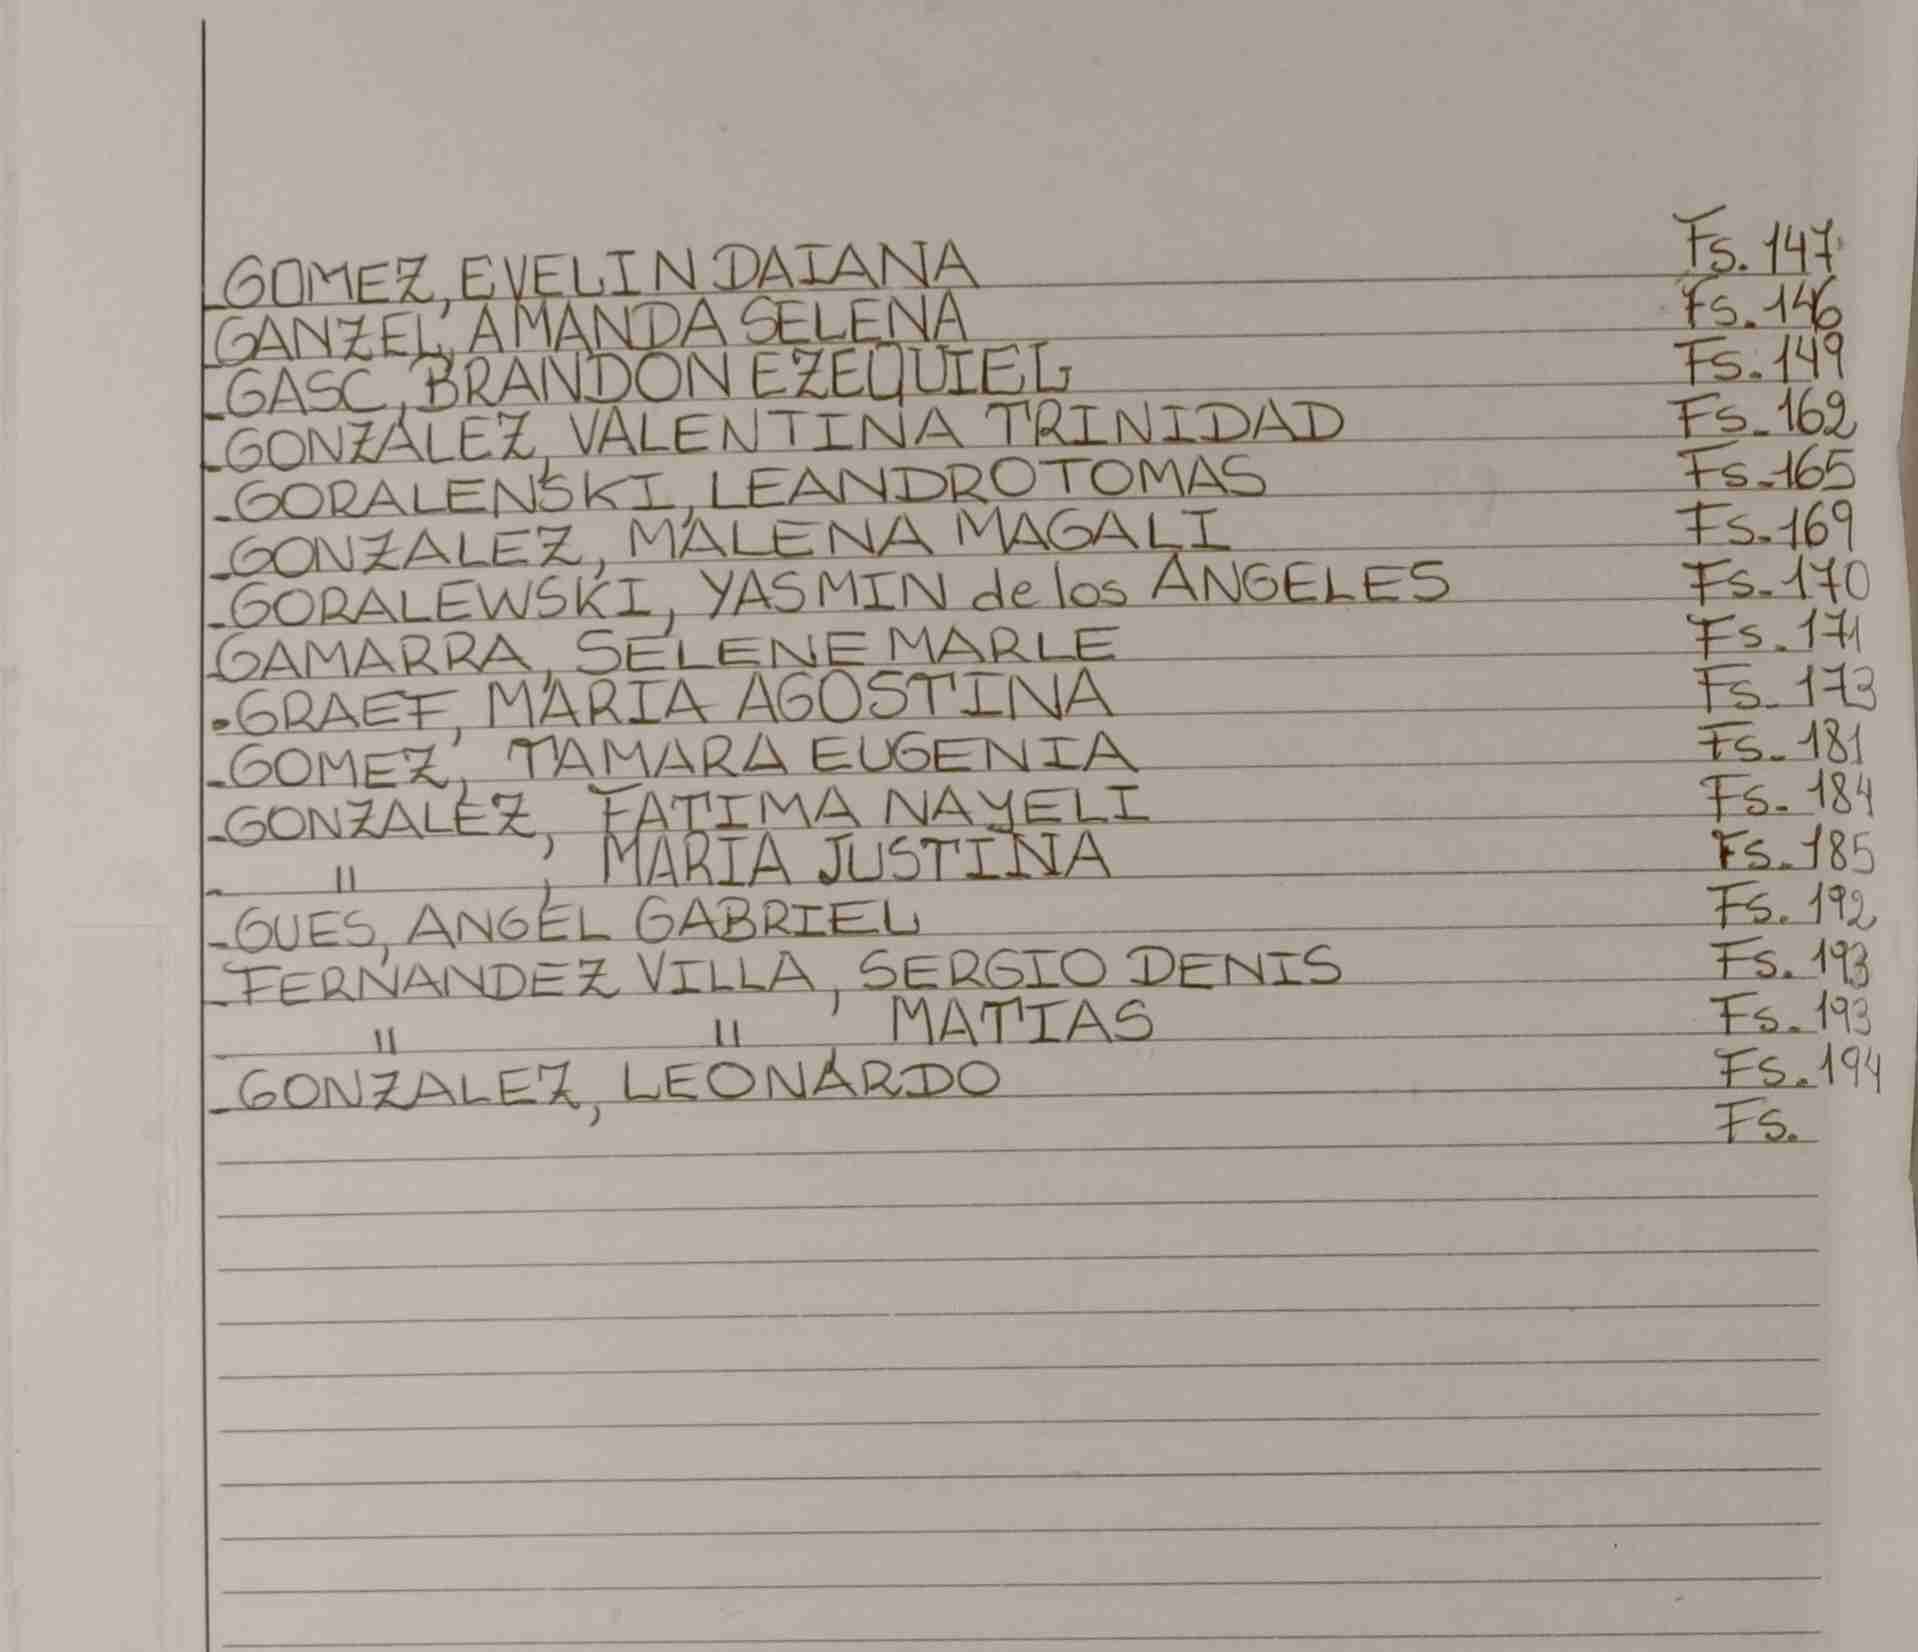 -GOMEZ, EVELIN DAIANA Fs. 147
-GANZEL, AMANDA SELENA Fs. 146
-GASC, BRANDON EZEQUIEL Fs. 149
-GONZALEZ, VALENTINA TRINIDAD Fs. 162
-GORALENSKI, LEANDRO TOMAS Fs. 165
-GONZALEZ, MALENA MAGALI Fs. 169
-GORALEWSKI, YASMIN de los ANGELES Fs. 170
-GAMARRA, SELENE MARLE Fs. 171
-GRAEF, MARIA AGOSTINA Fs. 173
-GOMEZ, TAMARA EUGENIA Fs. 181
-GONZALEZ, FATIMA NAYELI Fs. 184
- " , MARIA JUSTINA Fs. 185
-GUES, ANGEL GABRIEL Fs. 192
-FERNANDEZ VILLA, SERGIO DENIS Fs. 193
- " " , MATIAS Fs. 193
-GONZALEZ, LEONARDO Fs. 194
Fs.